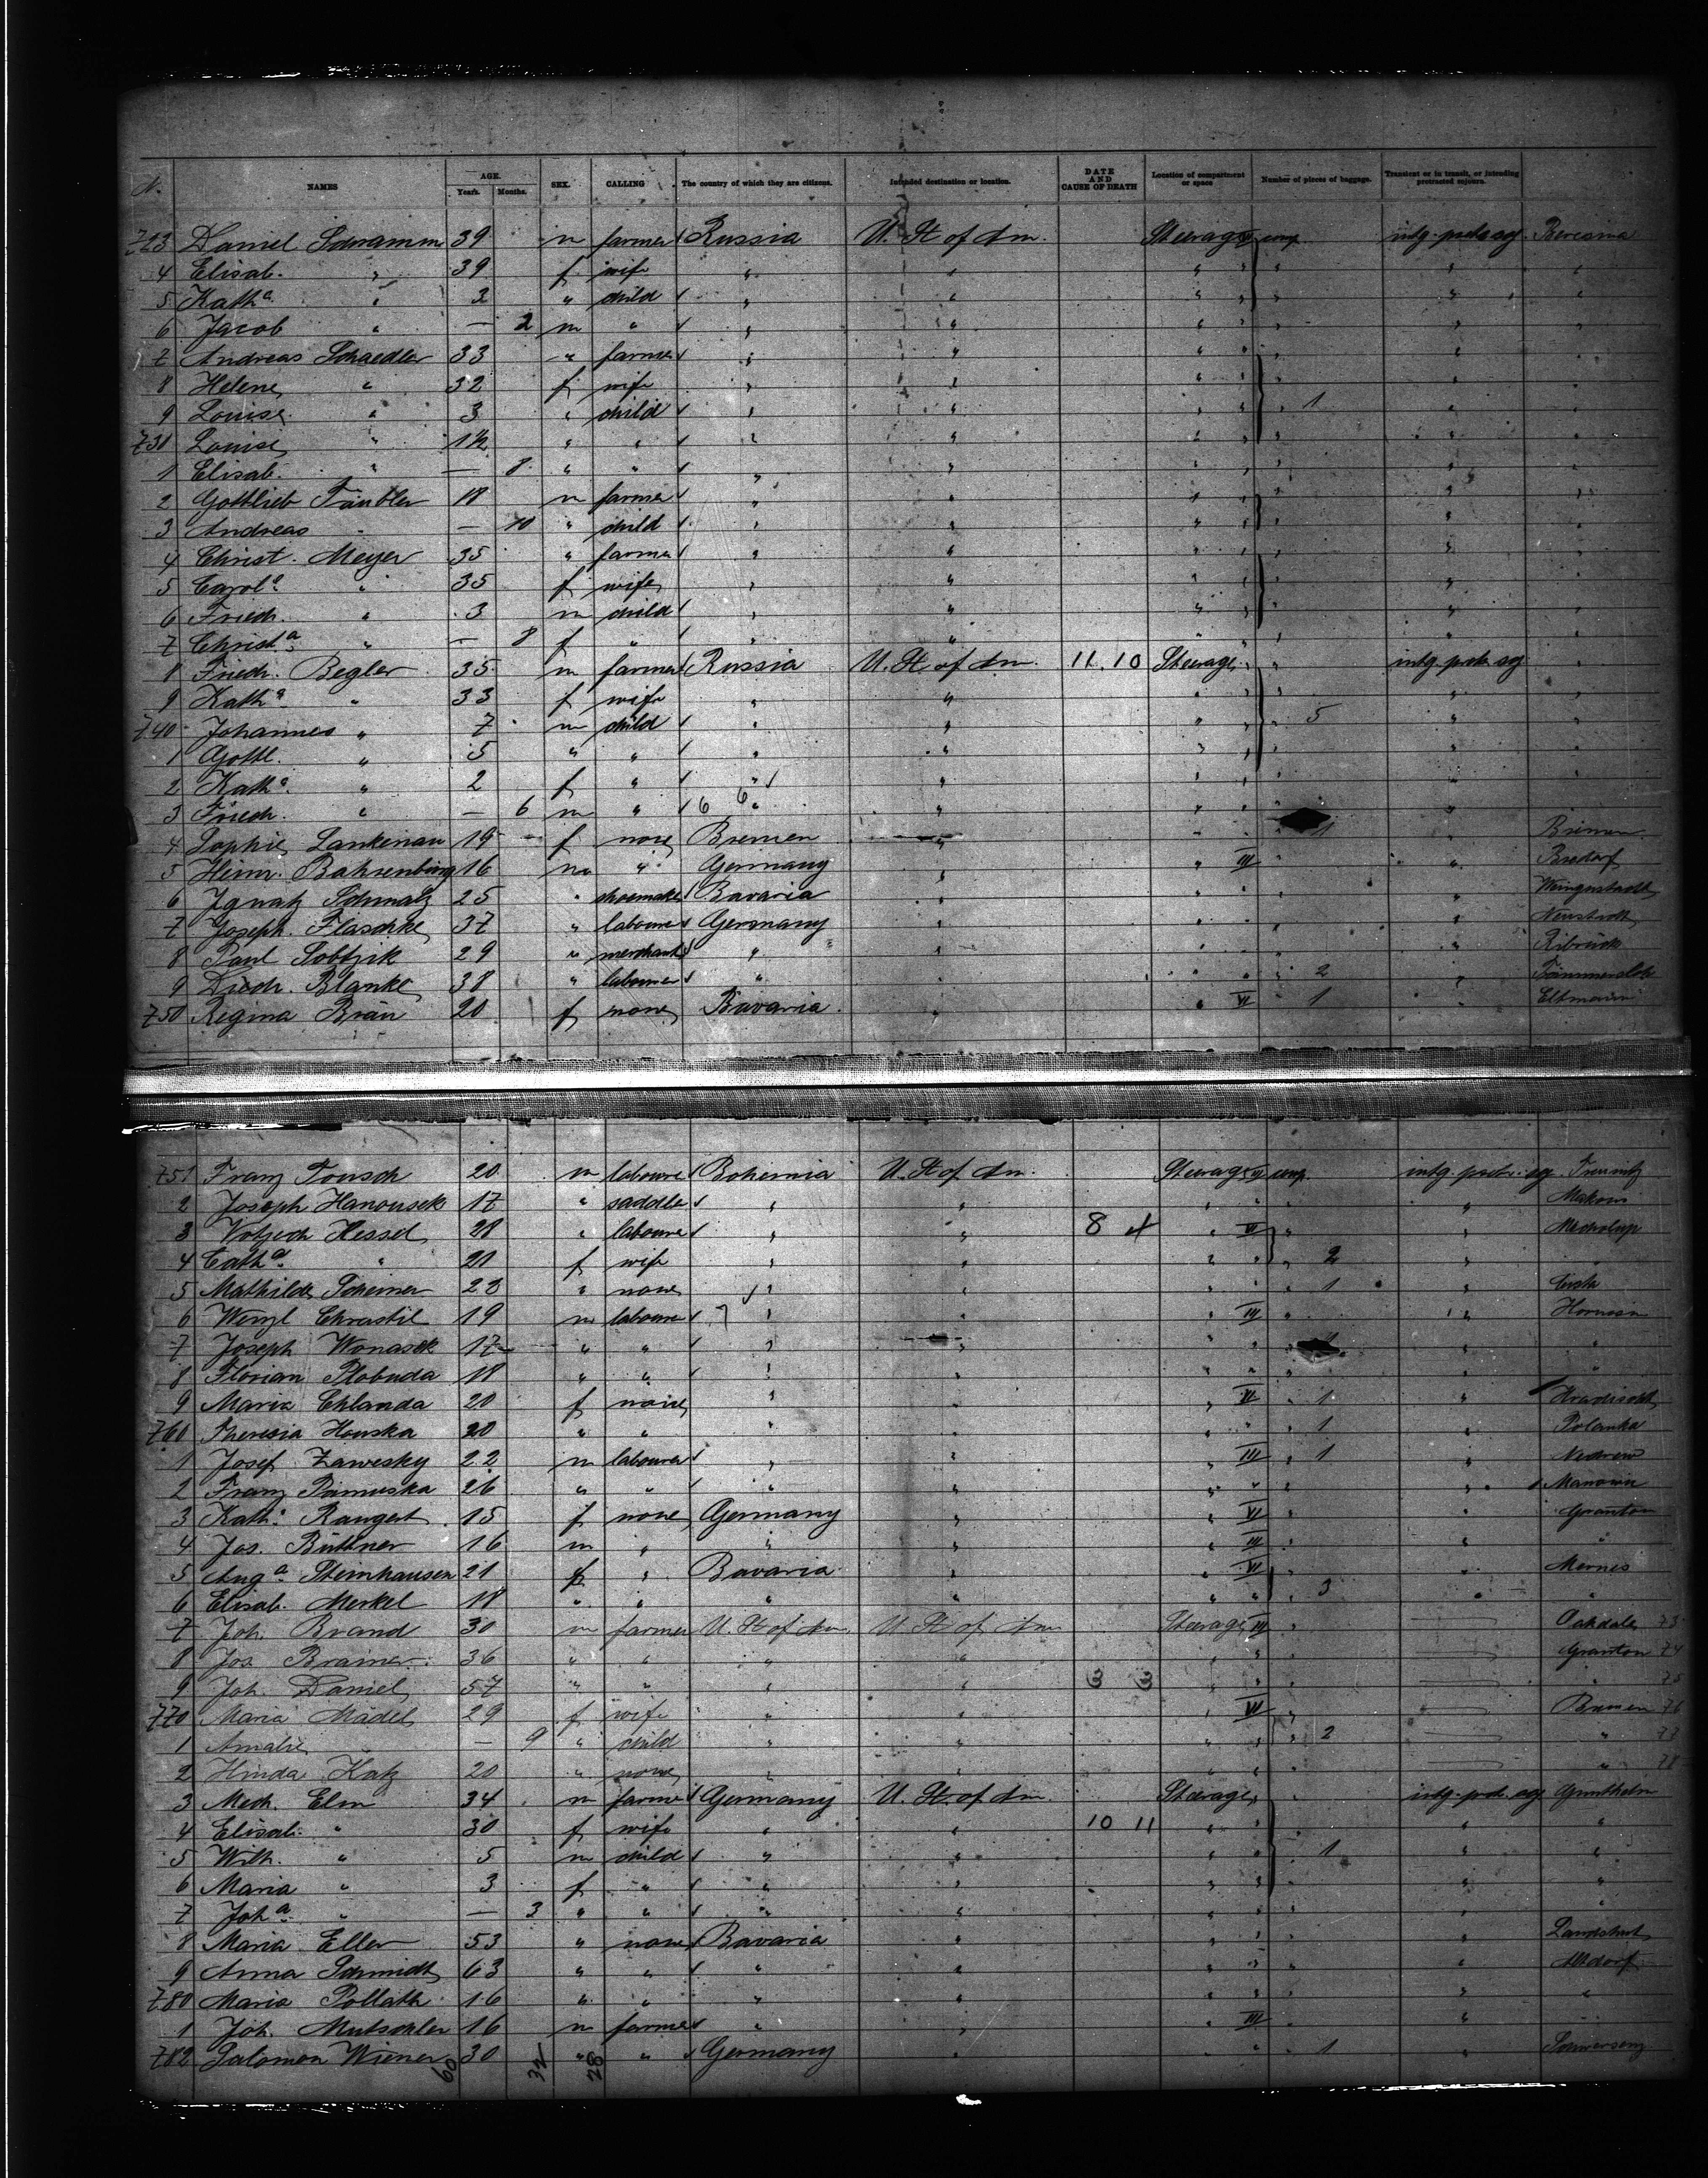 N. NAMES AGE. Years. Months. SEX. CALLING The country of which they are citizens. Intended destination or location. DATE AND CAUSE OF DEATH Location of compartment or space Number of pieces of baggage. Transient or in transit, or intending protracted sojourn.
723 Daniel Schramm 39 m farmer Russia U. St of Am. Steerage comp.
4 Elisab. " 39 f wife " "
5 Katha " 3 " child " "
6 Jacob " — 2 m " " "
7 Andreas Schaedler 33 " farmer " "
8 Helene " 32 f wife " "
9 Louise " 3 " child " " 1
730 Louise " 1½ " " " "
1 Elisab. " — 8 " " " "
2 Gottlieb Täubler 18 m farmer " "
3 Andreas " — 10 " child " "
4 Christ. Meyer 35 " farmer " "
5 Carola " 35 f wife " "
6 Friedr. " 3 m child " "
7 Christa " — 8 f " " "
8 Friedr. Begler 35 m farmer Russia U. St of Am. 11.10 Steerage
9 Katha " 33 f wife " "
740 Johannes " 7 m child " " 5
1 Gottl. " 5 " " " "
2 Katha " 2 f " " "
3 Friedr. " — 6 m " 6 6 " "
4 Sophie Lankenau 19 f none Bremen " 1 Bremen
5 Heinr. Bahrenburg 16 m " Germany " III Bredorf
6 Ignatz Schmalz 25 " shoemaker Bavaria "
7 Joseph Flaschke 37 " labourer Germany " Neustadt
8 Paul Sobtzik 29 " merchant " "
9 Diedr. Blanke 38 " labourer " " 2
750 Regina Bräu 20 f none Bavaria " VI 1 Eltmann
751 Franz Tousch 20 m labourer Bohemia U. St of Am. Steerage comp.
2 Joseph Hanousek 17 " saddler " "
3 Votjech Hessel 28 " labourer " " 8 4 VI
4 Catha " 21 f wife " " 2
5 Mathilde Scheiner 22 " none " " 1
6 Wenzl Chrastil 19 m labourer 7 " " III
7 Joseph Wonasek 17 " " " "
8 Florian Slobuda 18 " " " "
9 Maria Chlanda 20 f none " " VI 1
760 Theresia Houska 20 " " " " 1 Polanka
1 Josef Zawesky 22 m labourer " " III 1
2 Franz Pamuska 26 " " " "
3 Katha Rangert 15 f none Germany " VI Granton
4 Jos. Büttner 16 m " " " III "
5 Auga Steinhausen 21 f " Bavaria " VI Mernes
6 Elisab. Merkel 18 " " " " 3 "
7 Joh. Brand 30 m farmer U. St of Am. U. St of Am. Steerage III Oakdale 73
8 Jos. Brainer 36 " " " " Granton 74
9 Joh. Daniel 57 " " " " 3 3 " 75
770 Maria Mädel 29 f wife " " VI Bremen 76
1 Amalie " — 9 " child " " 2 " 77
2 Hinda Katz 20 " none " " " 78
3 Mech. Elm 34 m farmer Germany U. St. of Am. Steerage
4 Elisab. " 30 f wife " " 10 11
5 Wilh. " 5 m child " " 1
6 Maria " 3 f " " "
7 Joha " — 3 " " " "
8 Maria Eller 53 " none Bavaria " Landshut
9 Anna Schmidt 63 " " " " Altdorf
780 Maria Pollath 16 " " " " "
1 Joh. Mutschler 16 m farmer " " III
782 Salomon Wiener 30 " " Germany " 1 Schwersenz
60 32 28